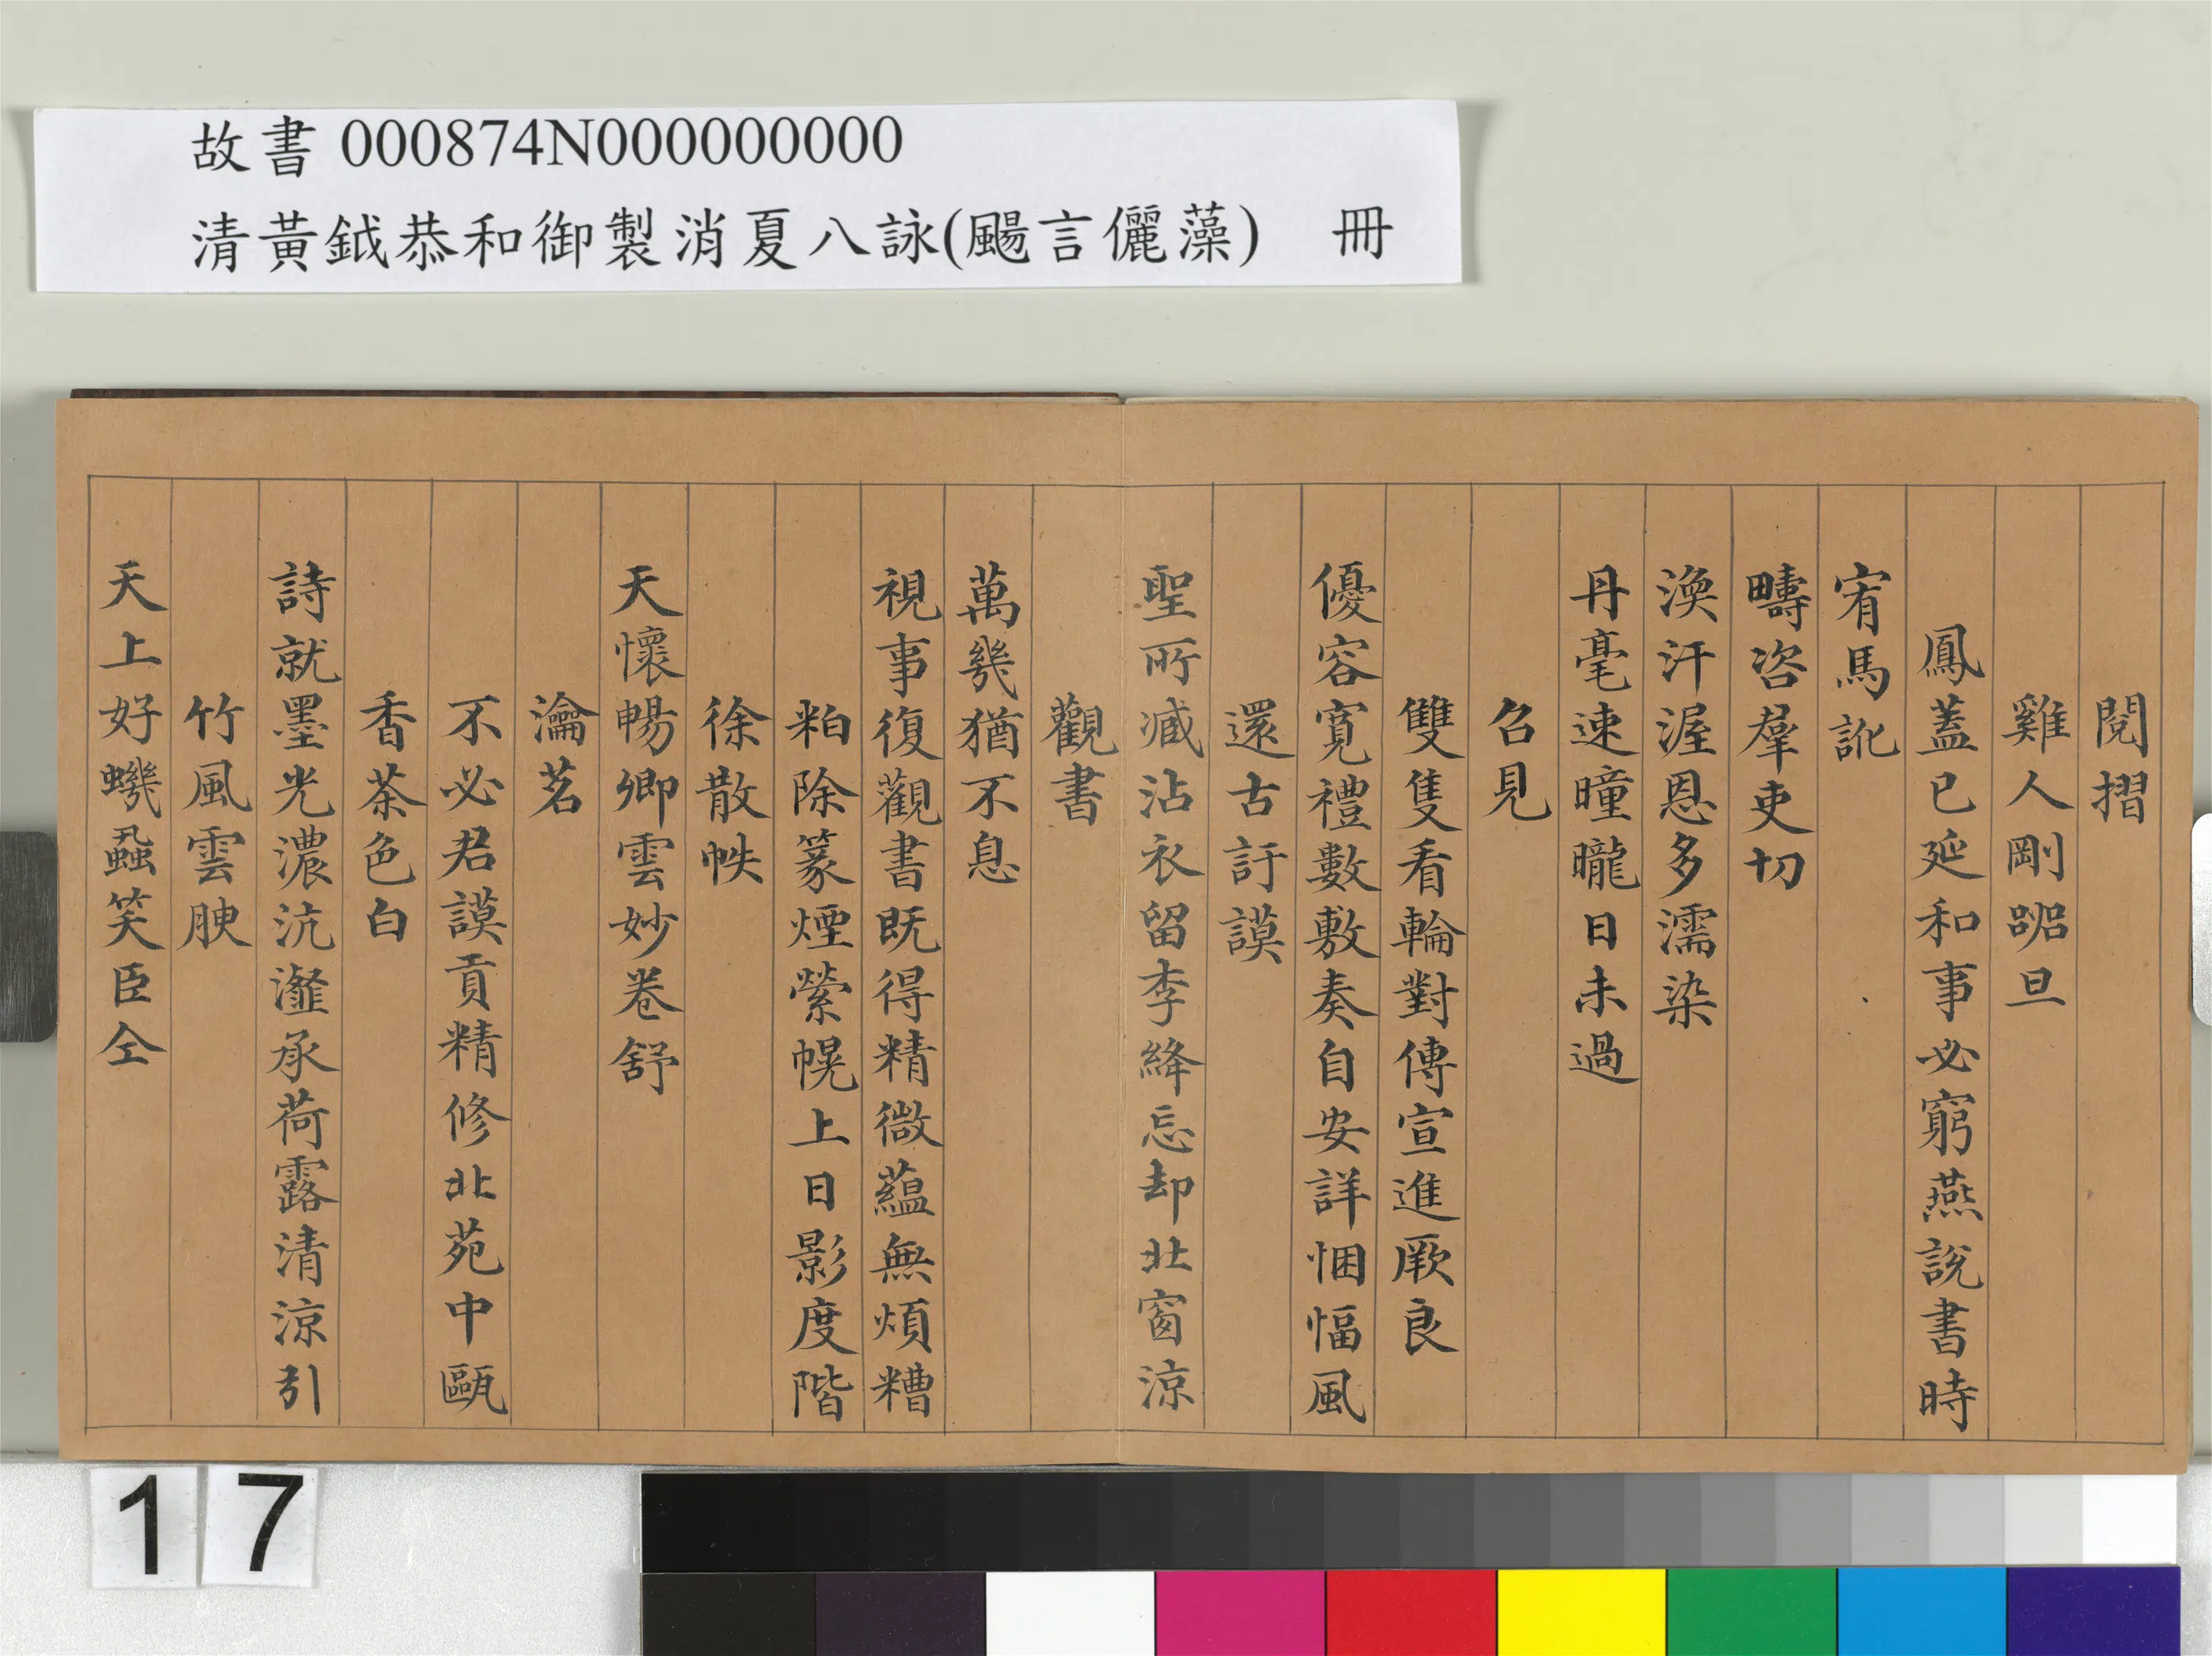 故書 000874N000000000
清黃鉞恭和御製消夏八詠(颺言儷藻)　冊
閱摺
雞人剛跽旦
鳳蓋已延和事必窮燕說書時
宥馬訛
疇咨羣吏切
渙汗渥恩多濡染
丹毫速曈曨日未過
召見
雙隻看輪對傳宣進厥良
優容寬禮數敷奏自安詳悃愊風
還古訏謨
聖所臧沾衣留李絳忘却北窗涼
觀書
萬幾猶不息
視事復觀書既得精微蘊無煩糟
粕除篆煙縈幌上日影度階
徐散帙
天懷暢卿雲妙卷舒
瀹茗
不必君謨貢精修北苑中甌
香茶色白
詩就墨光濃沆瀣承荷露清涼引
竹風雲腴
天上好蟣蝨笑臣仝
17